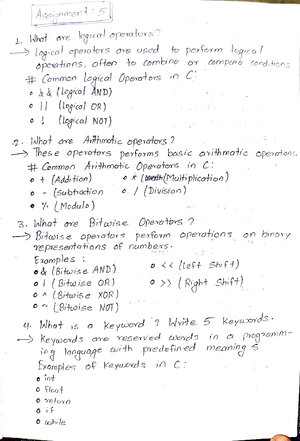 Assignment : 5
1. What are logical operators?
→ Logical operators are used to perform logical
operations, often to combine or compare conditions
# Common Logical Operators in C:
o && (Logical AND)
o || (Logical OR)
o ! (Logical NOT)
2. What are Arithmatic operators?
→ These operators performs basic arithmatic operations.
# Common Arithmatic Operators in C:
o + (Addition) o * (Multiplication)
o - (Subtraction o / (Division)
o % (Modulo)
3. What are Bitwise Operators?
→ Bitwise operators perform operations on binary
representations of numbers.
Examples :
o & (Bitwise AND) o << (Left Shift)
o | (Bitwise OR) o >> (Right Shift)
o ^ (Bitwise XOR)
o ~ (Bitwise NOT)
4. What is a keyword? Write 5 keywords.
→ Keywords are reserved words in a programm-
ing language with predefined meaning s
Examples of Keywords in C:
o int
o float
o return
o if
o while